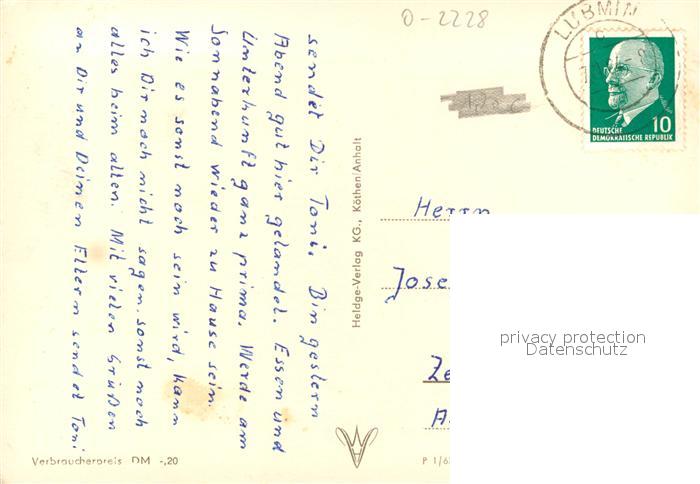 O-2228
LUBMIN
DEUTSCHE
DEMOKRATISCHE REPUBLIK
10
sendet Dir Toni. Bin gestern
Abend gut hier gelandet. Essen und
Unterkunft ganz prima. Werde am
Sonnabend wieder zu Hause sein.
Wie es sonst noch sein wird, kann
ich Dir noch nicht sagen. sonst noch
alles beim alten. Mit vielen Grüßen
an Dir und Deinen Eltern sendet Toni
Heldge-Verlag KG., Köthen/Anhalt
Herrn
Jose
Ze
A
privacy protection
Datenschutz
Verbraucherpreis DM -,20
P 1/6